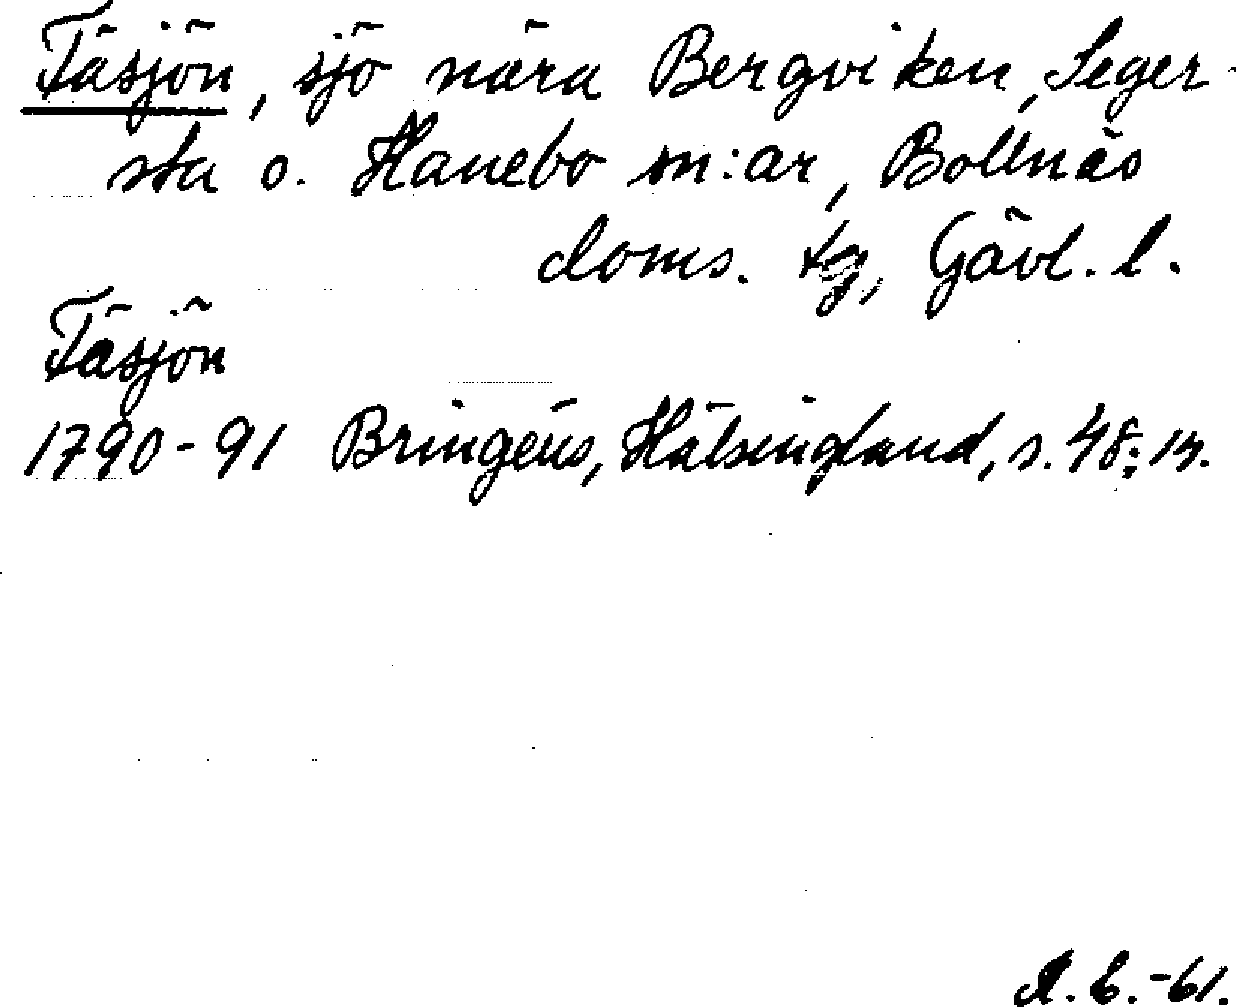 Täsjön, sjö nära Bergviken, Seger-
sta o. Hanebo sn:ar, Bollnäs
doms. tg, Gävl. l.
Täsjön
1790-91 Bringéus, Hälsingland, s. 48; m.
A. E. -61.